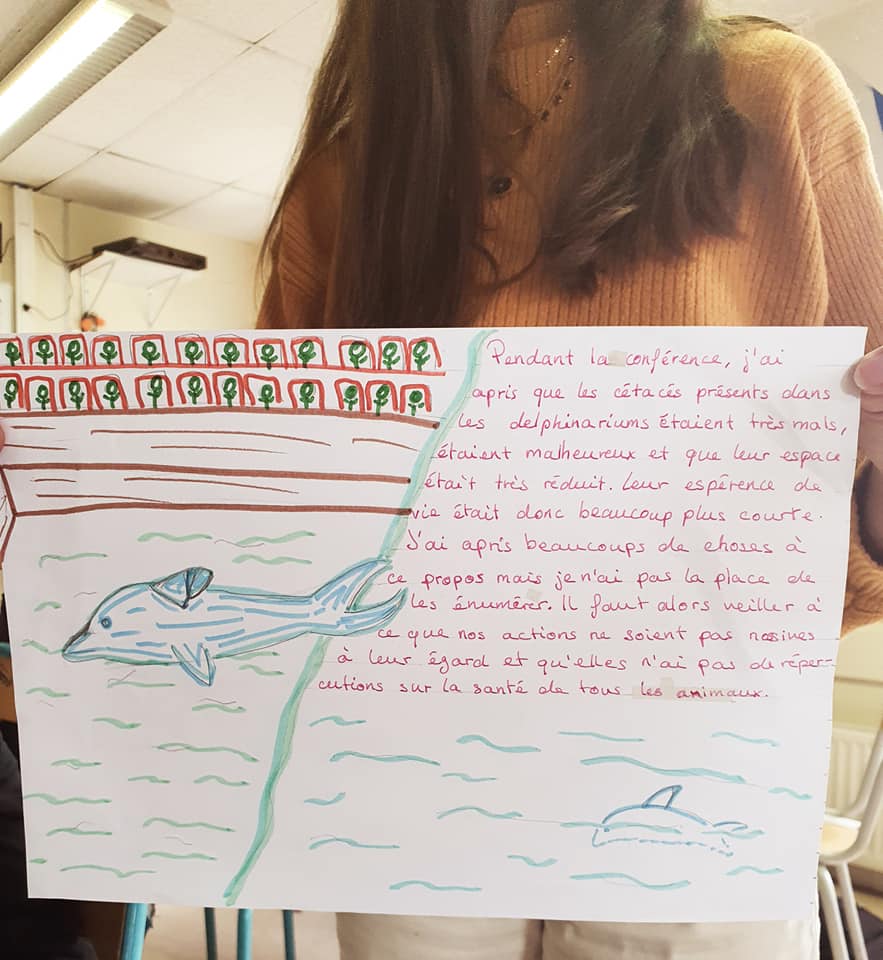 Pendant la conférence, j'ai
apris que les cétacés présents dans
les delphinariums étaient très mals,
étaient malheureux et que leur espace
était très réduit. Leur espérence de
vie était donc beaucoup plus courte.
J'ai apris beaucoups de choses à
ce propos mais je n'ai pas la place de
les énumérer. Il faut alors veiller à
ce que nos actions ne soient pas nosines
à leur égard et qu'elles n'ai pas de réper-
cutions sur la santé de tous les animaux.